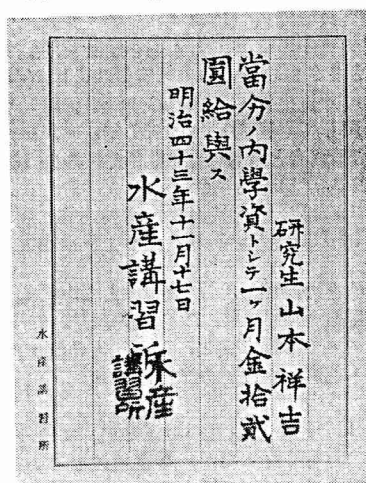 研究生 山本祥吉
當分ノ内學資トシテ一ヶ月金拾貳
圓給與ス
明治四十三年十一月十七日
水産講習所
水産講習所
水産講習所